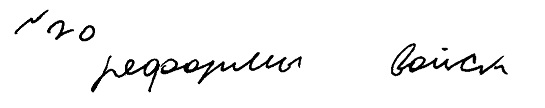 №20
реформы войск